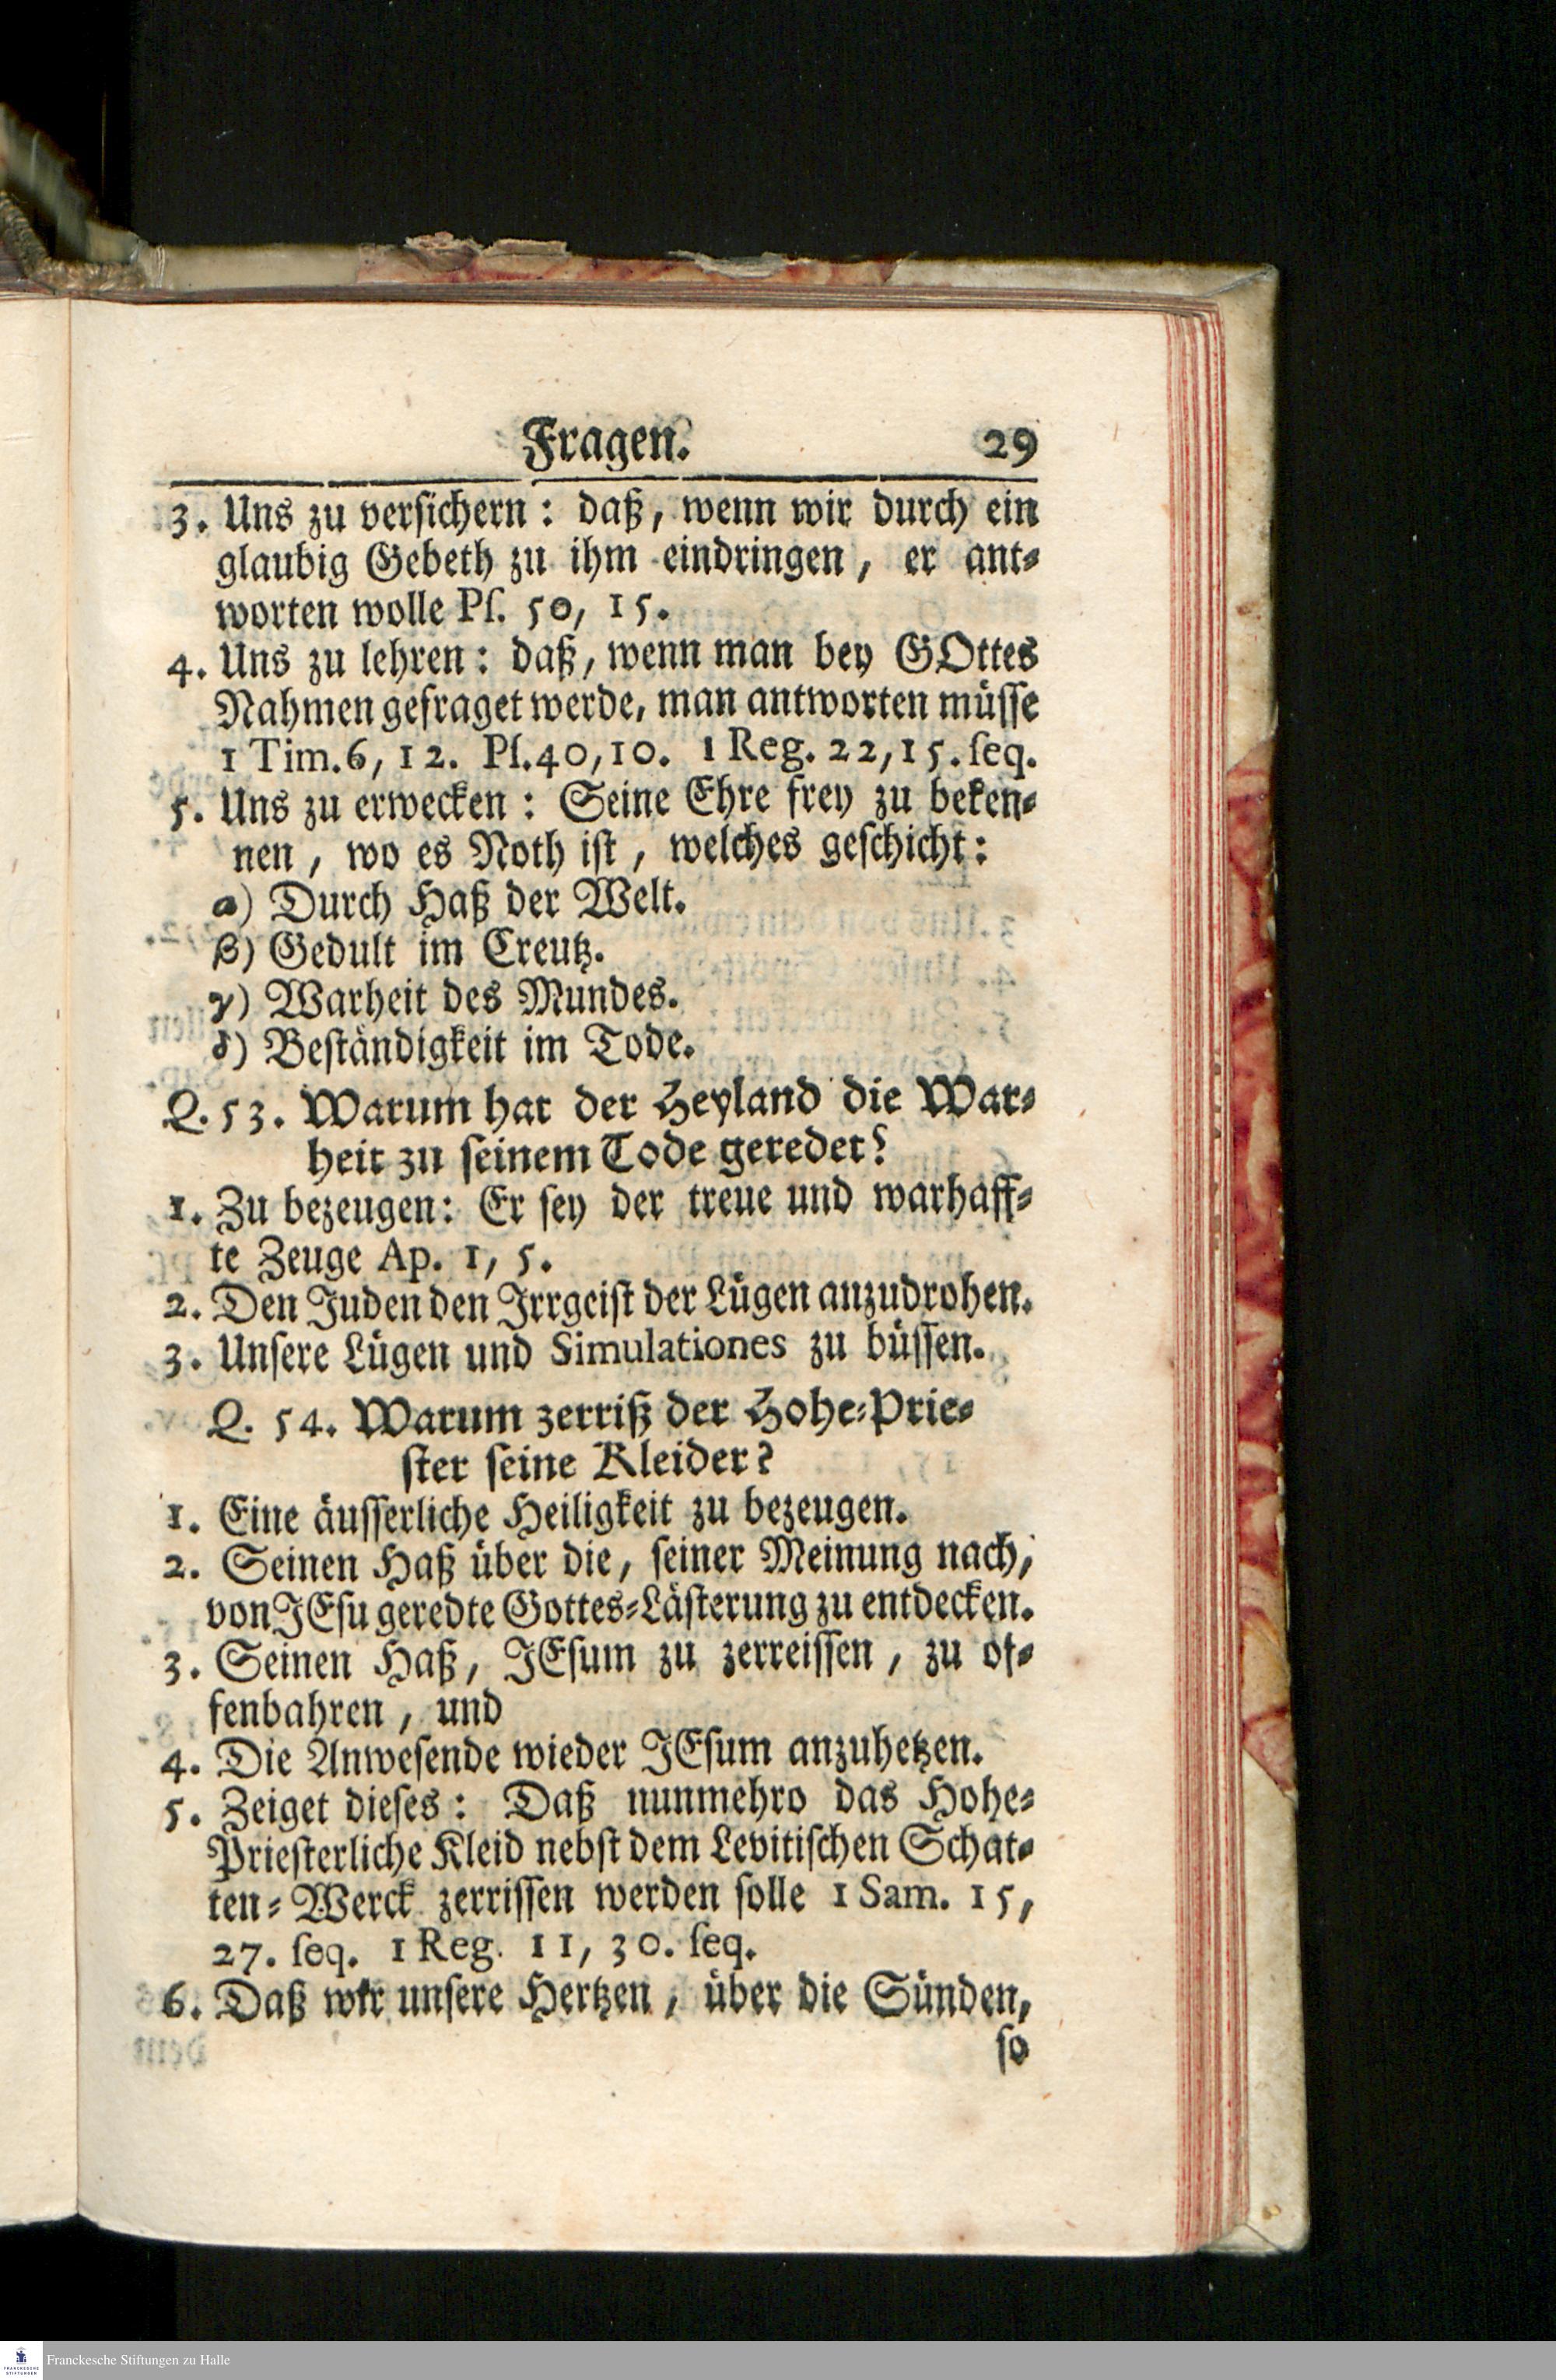 Fragen. 29
3. Uns zu versichern: daß, wenn wir durch ein
glaubig Gebeth zu ihm eindringen, er ant-
worten wolle Ps. 50, 15.
4. Uns zu lehren: daß, wenn man bey GOttes
Nahmen gefraget werde, man antworten müsse
1 Tim. 6, 12. Ps. 40, 10. 1 Reg. 22, 15. seq.
5. Uns zu erwecken: Seine Ehre frey zu beken-
nen, wo es Noth ist, welches geschicht:
α) Durch Haß der Welt.
β) Gedult im Creutz.
γ) Warheit des Mundes.
δ) Beständigkeit im Tode.
Q. 53. Warum hat der Heyland die War-
heit zu seinem Tode geredet?
1. Zu bezeugen: Er sey der treue und warhaff-
te Zeuge Ap. 1, 5.
2. Den Juden den Irrgeist der Lügen anzudrohen.
3. Unsere Lügen und Simulationes zu büssen.
Q. 54. Warum zerriß der Hohe-Prie-
ster seine Kleider?
1. Eine äusserliche Heiligkeit zu bezeugen.
2. Seinen Haß über die, seiner Meinung nach,
von JEsu geredte Gottes-Lästerung zu entdecken.
3. Seinen Haß, JEsum zu zerreissen, zu of-
fenbahren, und
4. Die Anwesende wieder JEsum anzuhetzen.
5. Zeiget dieses: Daß nunmehro das Hohe-
Priesterliche Kleid nebst dem Levitischen Schat-
ten-Werck zerrissen werden solle 1 Sam. 15,
27. seq. 1 Reg. 11, 30. seq.
6. Daß wir unsere Hertzen, über die Sünden,
so
FRANCKESCHE STIFTUNGEN
Franckesche Stiftungen zu Halle